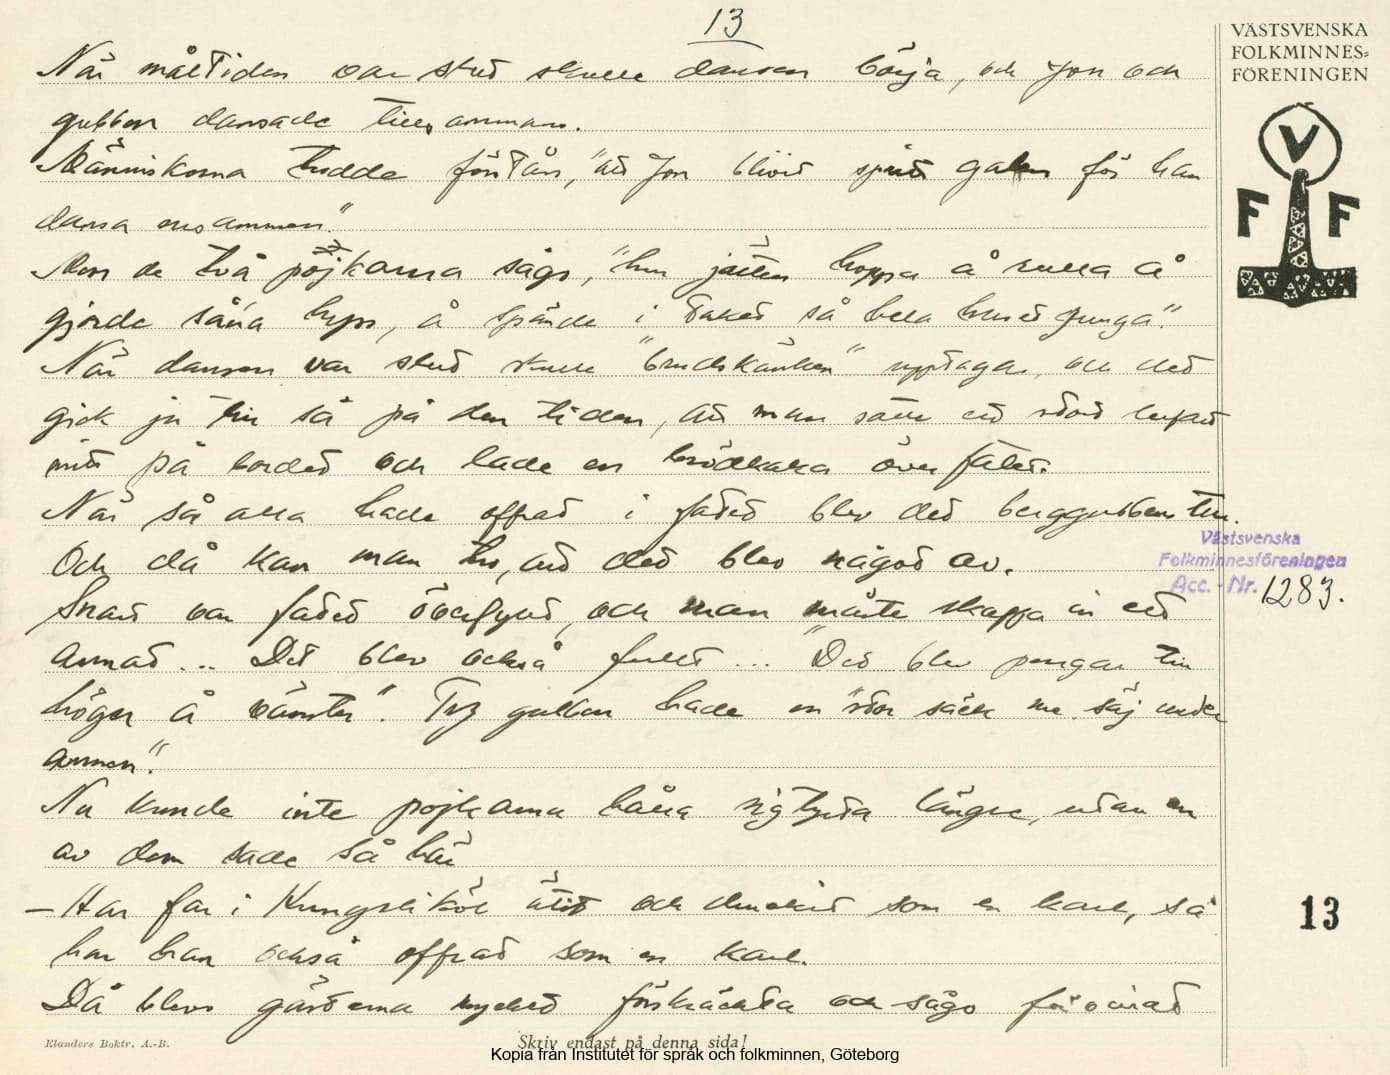 13
VÄSTSVENSKA
FOLKMINNES-
FÖRENINGEN
V
F F
När måltiden var slut skulle dansen börja, och Jon och
gubben dansade tillsamman.
Människorna trodde förstås, "att Jon blivit galen för han
dansa ensammen".
Men de två pöjkarna sågo, "hur jätten hoppa å rulla å
gjorde såna hyss, å spände i taket så hela huset junga".
När dansen var slut skulle "brudskänken" upptagas, och det
gick ju till så på den tiden, att man satte ett stort lerfat
mitt på bordet och lade en brödkaka över fatet.
När så alla hade offrat i fatet blev det berggubbens tur.
Och då kan man tro, att det blev något av.
Snart var fatet överfyllt, och man måste skaffa in ett
annat... Det blev också fullt... "Det blev pengar till
höger å vänster". Ty gubben hade en "stor säck me säj under
armen".
Nu kunde inte pojkarna hålla sig tysta längre, utan en
av dem sade så här
– Har far i Kungsliköl ätit och druckit som en karl, så
har han också offrat som en karl.
Då blevo gästerna mycket förskräckta och sågo
Västsvenska
Folkminnesföreningen
Acc. - Nr. 1283.
13
Elanders Boktr. A.-B.
Skriv endast på denna sida!
Kopia från Institutet för språk och folkminnen, Göteborg